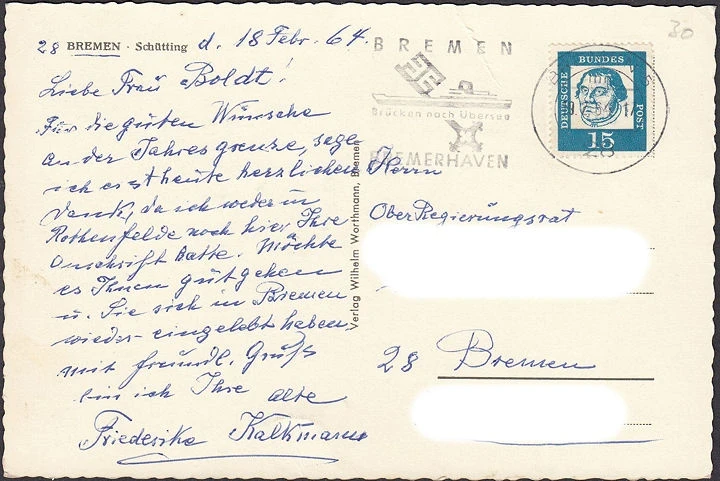 28 BREMEN · Schütting d. 18 Febr. 64.
Liebe Frau Boldt!
Für die guten Wünsche
an der Jahresgrenze, sage
ich erst heute herzlichen
Dank, da ich weder in
Rothenfelde noch hier Ihre
Anschrift hatte. Möchte
es Ihnen gutgehen
u. Sie sich in Bremen
wieder eingelebt haben,
mit freundl. Gruß
bin ich Ihre alte
Friederike Kalkmann
Verlag Wilhelm Worthmann, Bremen
30
BREMEN
Brücken nach Übersee
BREMERHAVEN
DEUTSCHE BUNDES POST
15
Herrn
Ober Regierungsrat
28 Bremen